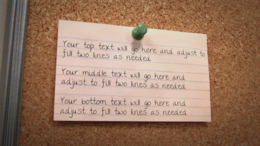 Your top text will go here and adjust to
fill two lines as needed
Your middle text will go here and
adjust to fill two lines as needed
Your bottom text will go here and
adjust to fill two lines as needed